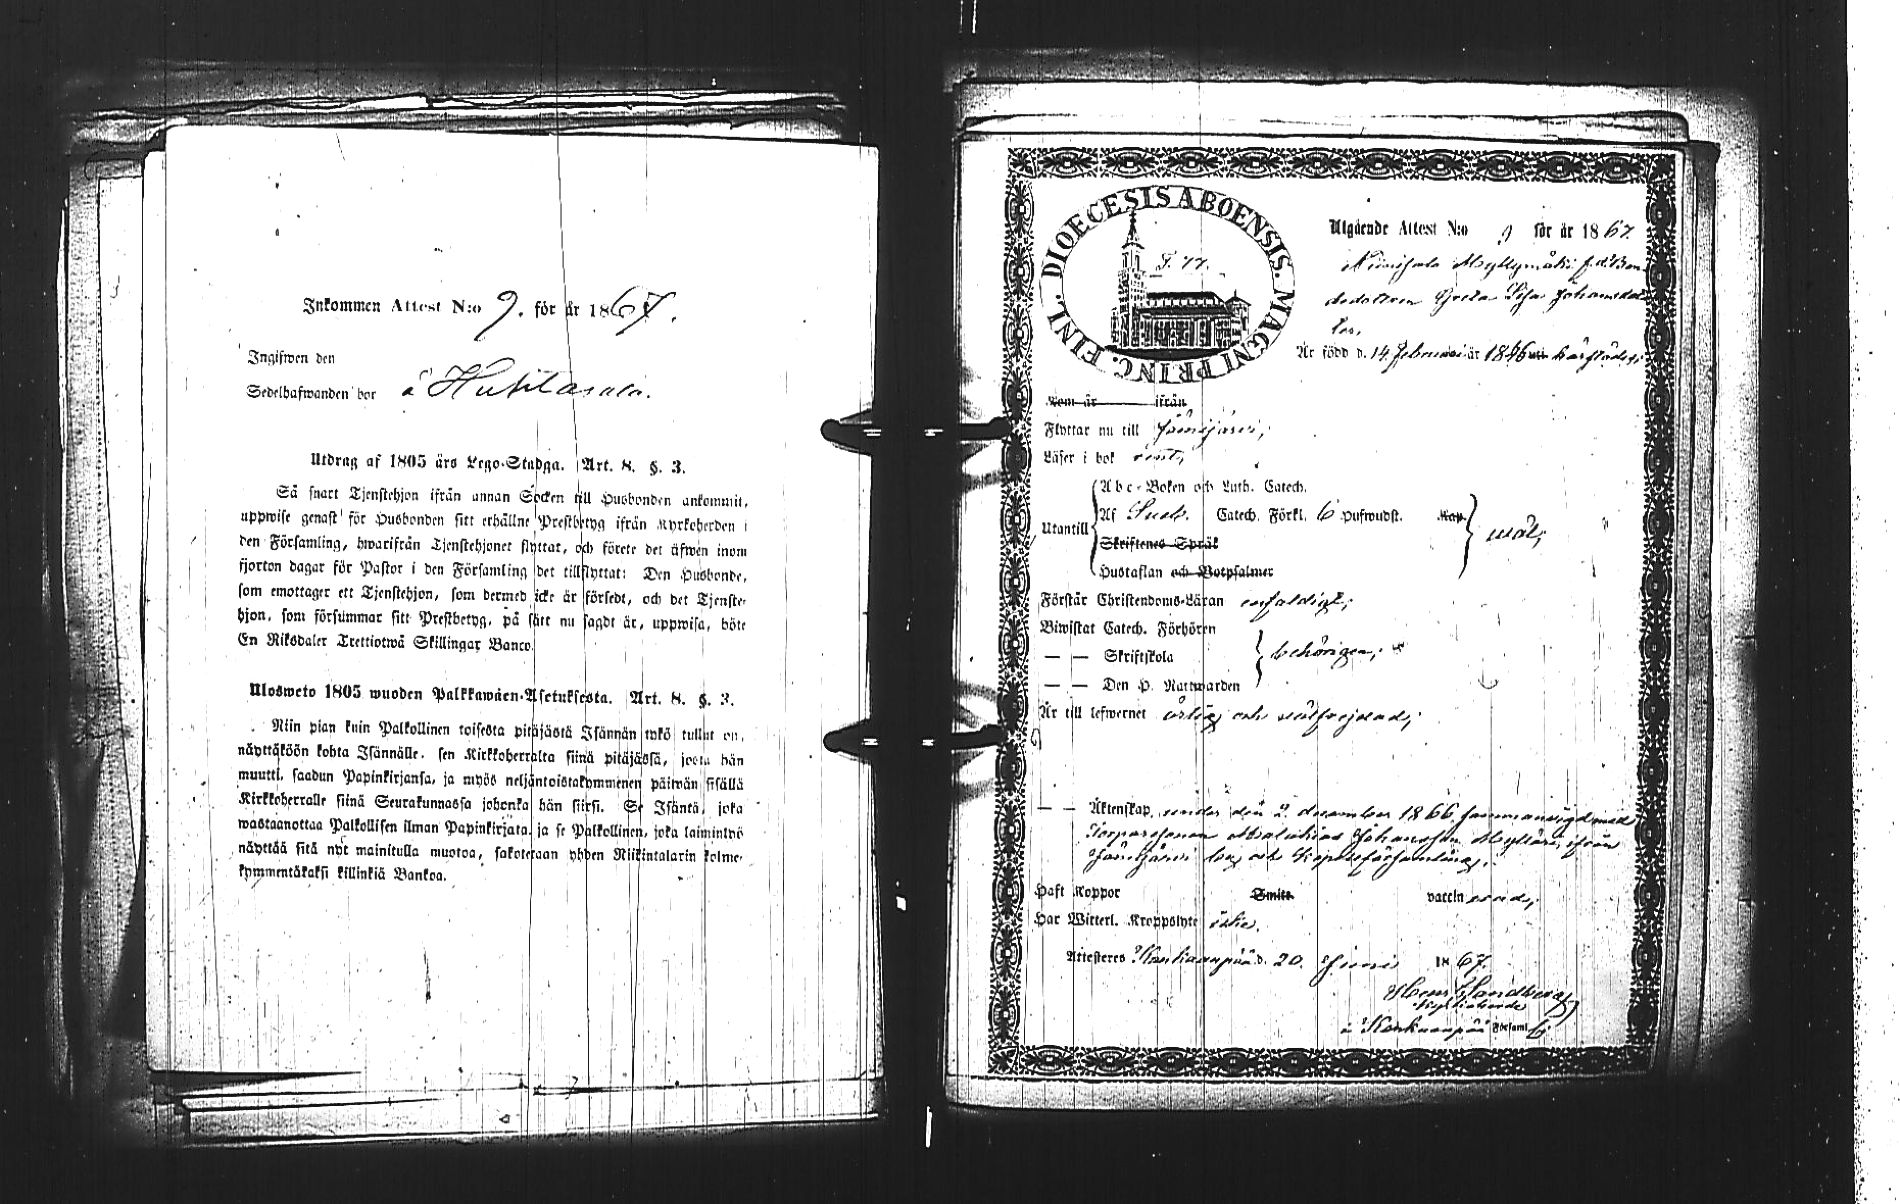 Inkommen Attest N:o 9. för år 1867.
Ingifwen den
Sedelhafwanden bor å Huhtasalo.
Utdrag af 1805 års Lego-Stadga. Art. 8. §. 3.
Så snart Tjenstehjon ifrån annan Socken till Husbonden ankommit,
uppwise genast för Husbonden sitt erhållne Prestbetyg ifrån Kyrkoherden i
den Församling, hwarifrån Tjenstehjonet flyttat, och förete det äfwen inom
fjorton dagar för Pastor i den Församling det tillflyttat: Den Husbonde,
som emottager ett Tjenstehjon, som dermed icke är försedt, och det Tjenste-
hjon, som försummar sitt Prestbetyg, på sätt nu sagdt är, uppwisa, böte
En Riksdaler Trettiotwå Skillingar Banco.
Ulosweto 1805 wuoden Palkkawäen-Asetuksesta. Art. 8. §. 3.
Niin pian kuin Palkollinen toisesta pitäjästä Isännän tykö tullut on,
näyttäköön kohta Isännälle, sen Kirkkoherralta siinä pitäjässä, josta hän
muutti, saadun Papinkirjansa, ja myös neljäntoistakymmenen päiwän sisällä
Kirkkoherralle siinä Seurakunnassa johonka hän siirsi. Se Isäntä, joka
wastaanottaa Palkollisen ilman Papinkirjata, ja se Palkollinen, joka laimintyö
näyttää sitä nyt mainitulla muotoa, sakotetaan yhden Riikintalarin kolme-
kymmentäkaksi killinkiä Bankoa.
DIOECESIS ABOENSIS. MAGNI PRINC. FINL.
Utgående Attest N:o 9 för år 1867.
Niinisalo Myllymäki f.d. Bon-
dedottren Greta Lisa Johansdot-
ter,
Är född d. 14 Februari år 1846
Kom är ifrån
Flyttar nu till Jämijärvi,
Läser i bok
Abc-Boken och Luth. Catech.
Utantill Af Sveb. Catech. Förkl. 6 Hufwudst. Kap.
Skriftenes Språk
Hustaflan och Botpsalmer
Förstår Christendoms-Läran enfaldigt;
Biwistat Catech. Förhören
— — Skriftskola behörigen;
— — Den H. Nattwarden
Är till lefwernet ärlig och wälfrejdad;
— — Äktenskap, under den 2. december 1866 sammanvigd med
Torparesonen Malakias Johansson Mylläri, ifrån
Jämijärvi och Kapellförsamling.
Haft Koppor Smitt. vaccinerad,
Har Witterl. Kroppslyte icke.
Attesteras Kankaanpää d. 20. Juni 1867.
Henr. Sandberg
Kyrkoherde
i Kankaanpää Församl.